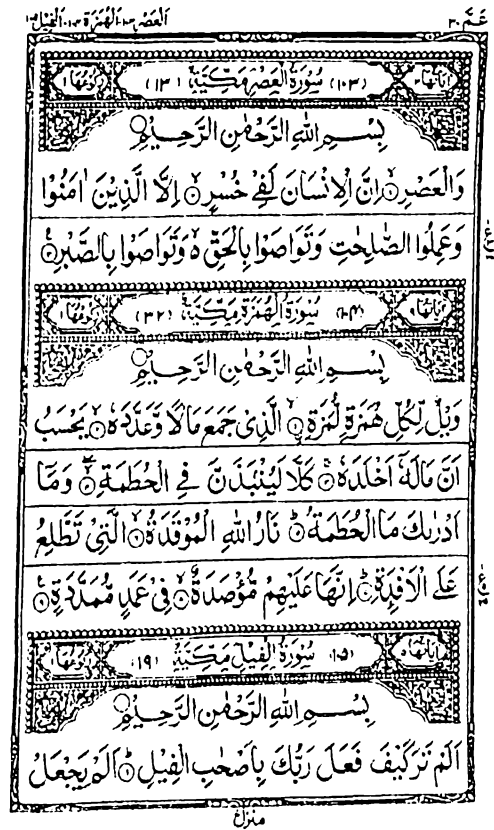 عَمَّ ٣٠ العَصْر ١٠٣ الهُمَزَة ١٠٤ الفِيْل ١٠٥
اٰيَاتُهَا ٣ (١٠٣) سُوْرَةُ الْعَصْرِ مَكِّيَّةٌ (١٣) رُكُوْعُهَا ١
بِسْمِ اللهِ الرَّحْمٰنِ الرَّحِيْمِ
وَالْعَصْرِ ۙ۱ اِنَّ الْاِنْسَانَ لَفِيْ خُسْرٍ ۙ۲ اِلَّا الَّذِيْنَ اٰمَنُوْا
وَعَمِلُوا الصّٰلِحٰتِ وَتَوَاصَوْا بِالْحَقِّ ۙ۬ وَتَوَاصَوْا بِالصَّبْرِ ۳
اٰيَاتُهَا ٩ (١٠٤) سُوْرَةُ الْهُمَزَةِ مَكِّيَّةٌ (٣٢) رُكُوْعُهَا ١
بِسْمِ اللهِ الرَّحْمٰنِ الرَّحِيْمِ
وَيْلٌ لِّكُلِّ هُمَزَةٍ لُّمَزَةِ ۙ۱ الَّذِيْ جَمَعَ مَالًا وَّعَدَّدَهٗ ۙ۲ يَحْسَبُ
اَنَّ مَالَهٗۤ اَخْلَدَهٗ ۚ۳ كَلَّا لَيُنْۢبَذَنَّ فِي الْحُطَمَةِ ۖ۴ وَمَاۤ
اَدْرٰىكَ مَا الْحُطَمَةُ ۵ نَارُ اللهِ الْمُوْقَدَةُ ۙ۶ الَّتِيْ تَطَّلِعُ
عَلَى الْاَفْـِٕدَةِ ۷ اِنَّهَا عَلَيْهِمْ مُّؤْصَدَةٌ ۙ۸ فِيْ عَمَدٍ مُّمَدَّدَةٍ ۹
اٰيَاتُهَا ٥ (١٠٥) سُوْرَةُ الْفِيْلِ مَكِّيَّةٌ (١٩) رُكُوْعُهَا ١
بِسْمِ اللهِ الرَّحْمٰنِ الرَّحِيْمِ
اَلَمْ تَرَ كَيْفَ فَعَلَ رَبُّكَ بِاَصْحٰبِ الْفِيْلِ ۱ اَلَمْ يَجْعَلْ
منزل